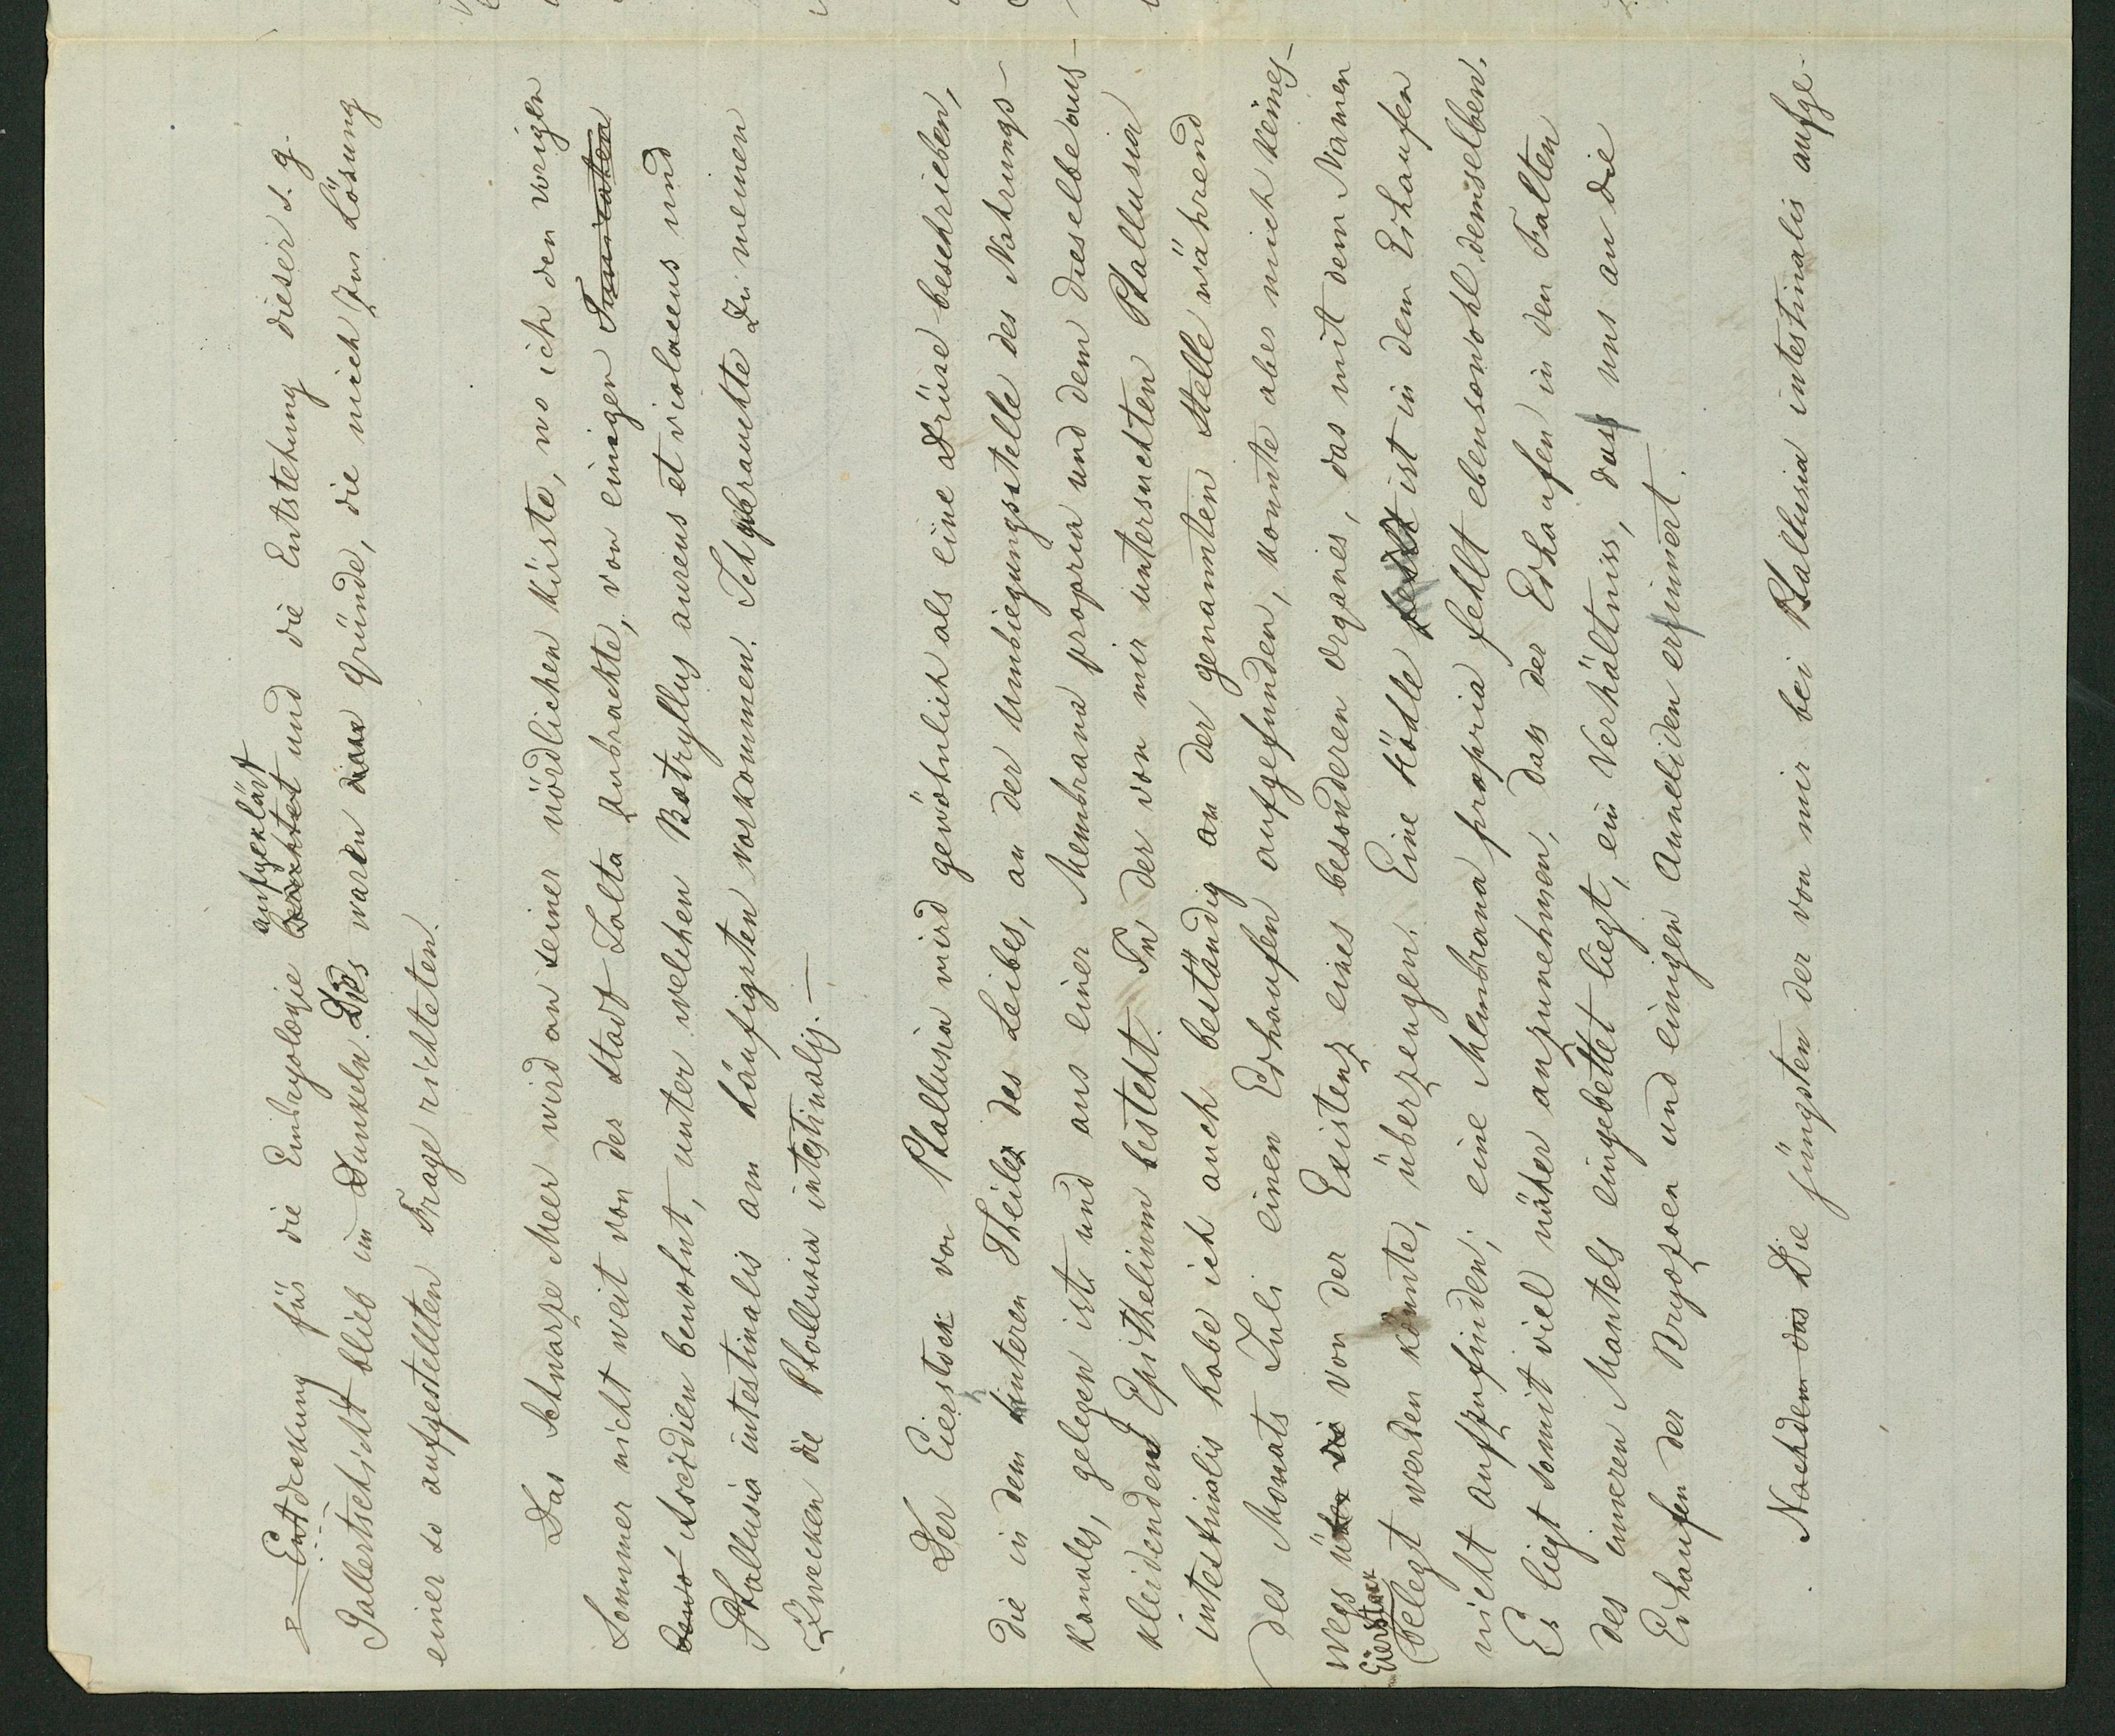 Entdeckung für die Embryologie aufgeklärt ~~berichtet~~ und die Entstehung dieser s. g.
Gallertschicht blieb im Dunkeln. Dies waren Gründe, die mich zur Lösung
einer so aufgestellten Frage richteten.
Das Schwarze Meer wird an seiner nördlichen Küste, wo ich den vorigen
Sommer nicht weit von der Stadt Jalta zubrachte, von einigen ~~Tunicaten~~
~~bewo~~ Ascidien bewohnt, unter welchen Botryllus aureus et violaceus und
Phallusia intestinalis am häufigsten vorkommen. Ich gebrauchte zu meinen
Zwecken die Phallusia intestinalis. —
Der Eierstock von Phallusia wird gewöhnlich als eine Drüse beschrieben,
die in dem hinteren Theile des Leibes, an der Umbiegungsstelle des Nahrungs-
kanales, gelegen ist und aus einer Membrana propria und dem dieselbe aus-
kleidenden Epithelium besteht. In der von mir untersuchten Phallusia
intestinalis habe ich auch beständig an der genannten Stelle während
des Monats Juli einen Eihaufen aufgefunden, konnte aber mich keines-
wegs ~~über die~~ von der Existenz eines besonderen Organes, das mit dem Namen
Eierstock belegt werden könnte, überzeugen. Eine Höhle ~~fehlt~~ ist in dem Eihaufen
nicht aufzufinden; eine Membrana propria fehlt ebensowohl demselben.
Es liegt somit viel näher anzunehmen, dass der Eihaufen in den Falten
des inneren Mantels eingebettet liegt, ein Verhältniss, dass uns an die
Eihaufen der Bryozoen und einigen Anneliden erinnert.
~~Nachdem das~~ Die jüngsten der von mir bei Phallusia intestinalis aufge-